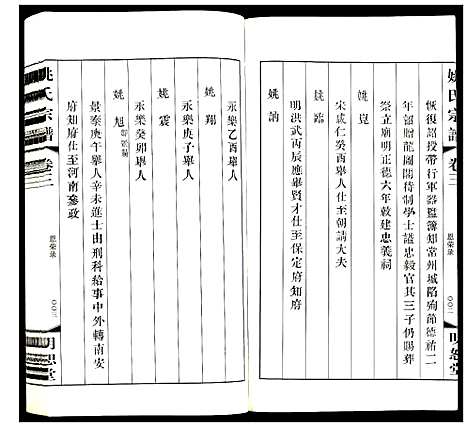 姚氏宗譜
卷三
恩榮录
〇〇二
明恕堂
恢復詔授帶行軍器監簿知常州城陷殉節德祐二
年韶贈龍圖閣待制學士諡忠毅官其二子仍賜葬
崇立廟明正德六年敕建忠義祠
姚崑
宋咸仁癸酉舉人仕至朝請大夫
姚臨
明洪武丙辰應舉賢才仕至保定府知府
姚訥
永樂乙酉舉人
姚翔
永樂庚子舉人
姚震
永樂癸卯舉人
姚旭
景泰庚午舉人辛未進士由刑科給事中外轉南安
府知府仕至河南參政
姚氏宗譜
卷三
恩榮录
〇〇三
明恕堂